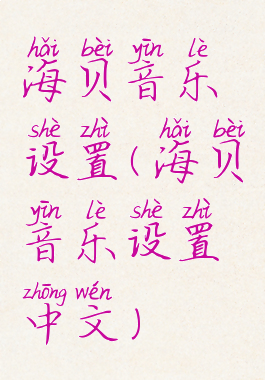 hǎi bèi yīn lè
海贝音乐
shè zhì hǎi bèi
设置(海贝
yīn lè shè zhì
音乐设置
zhōng wén
中文)